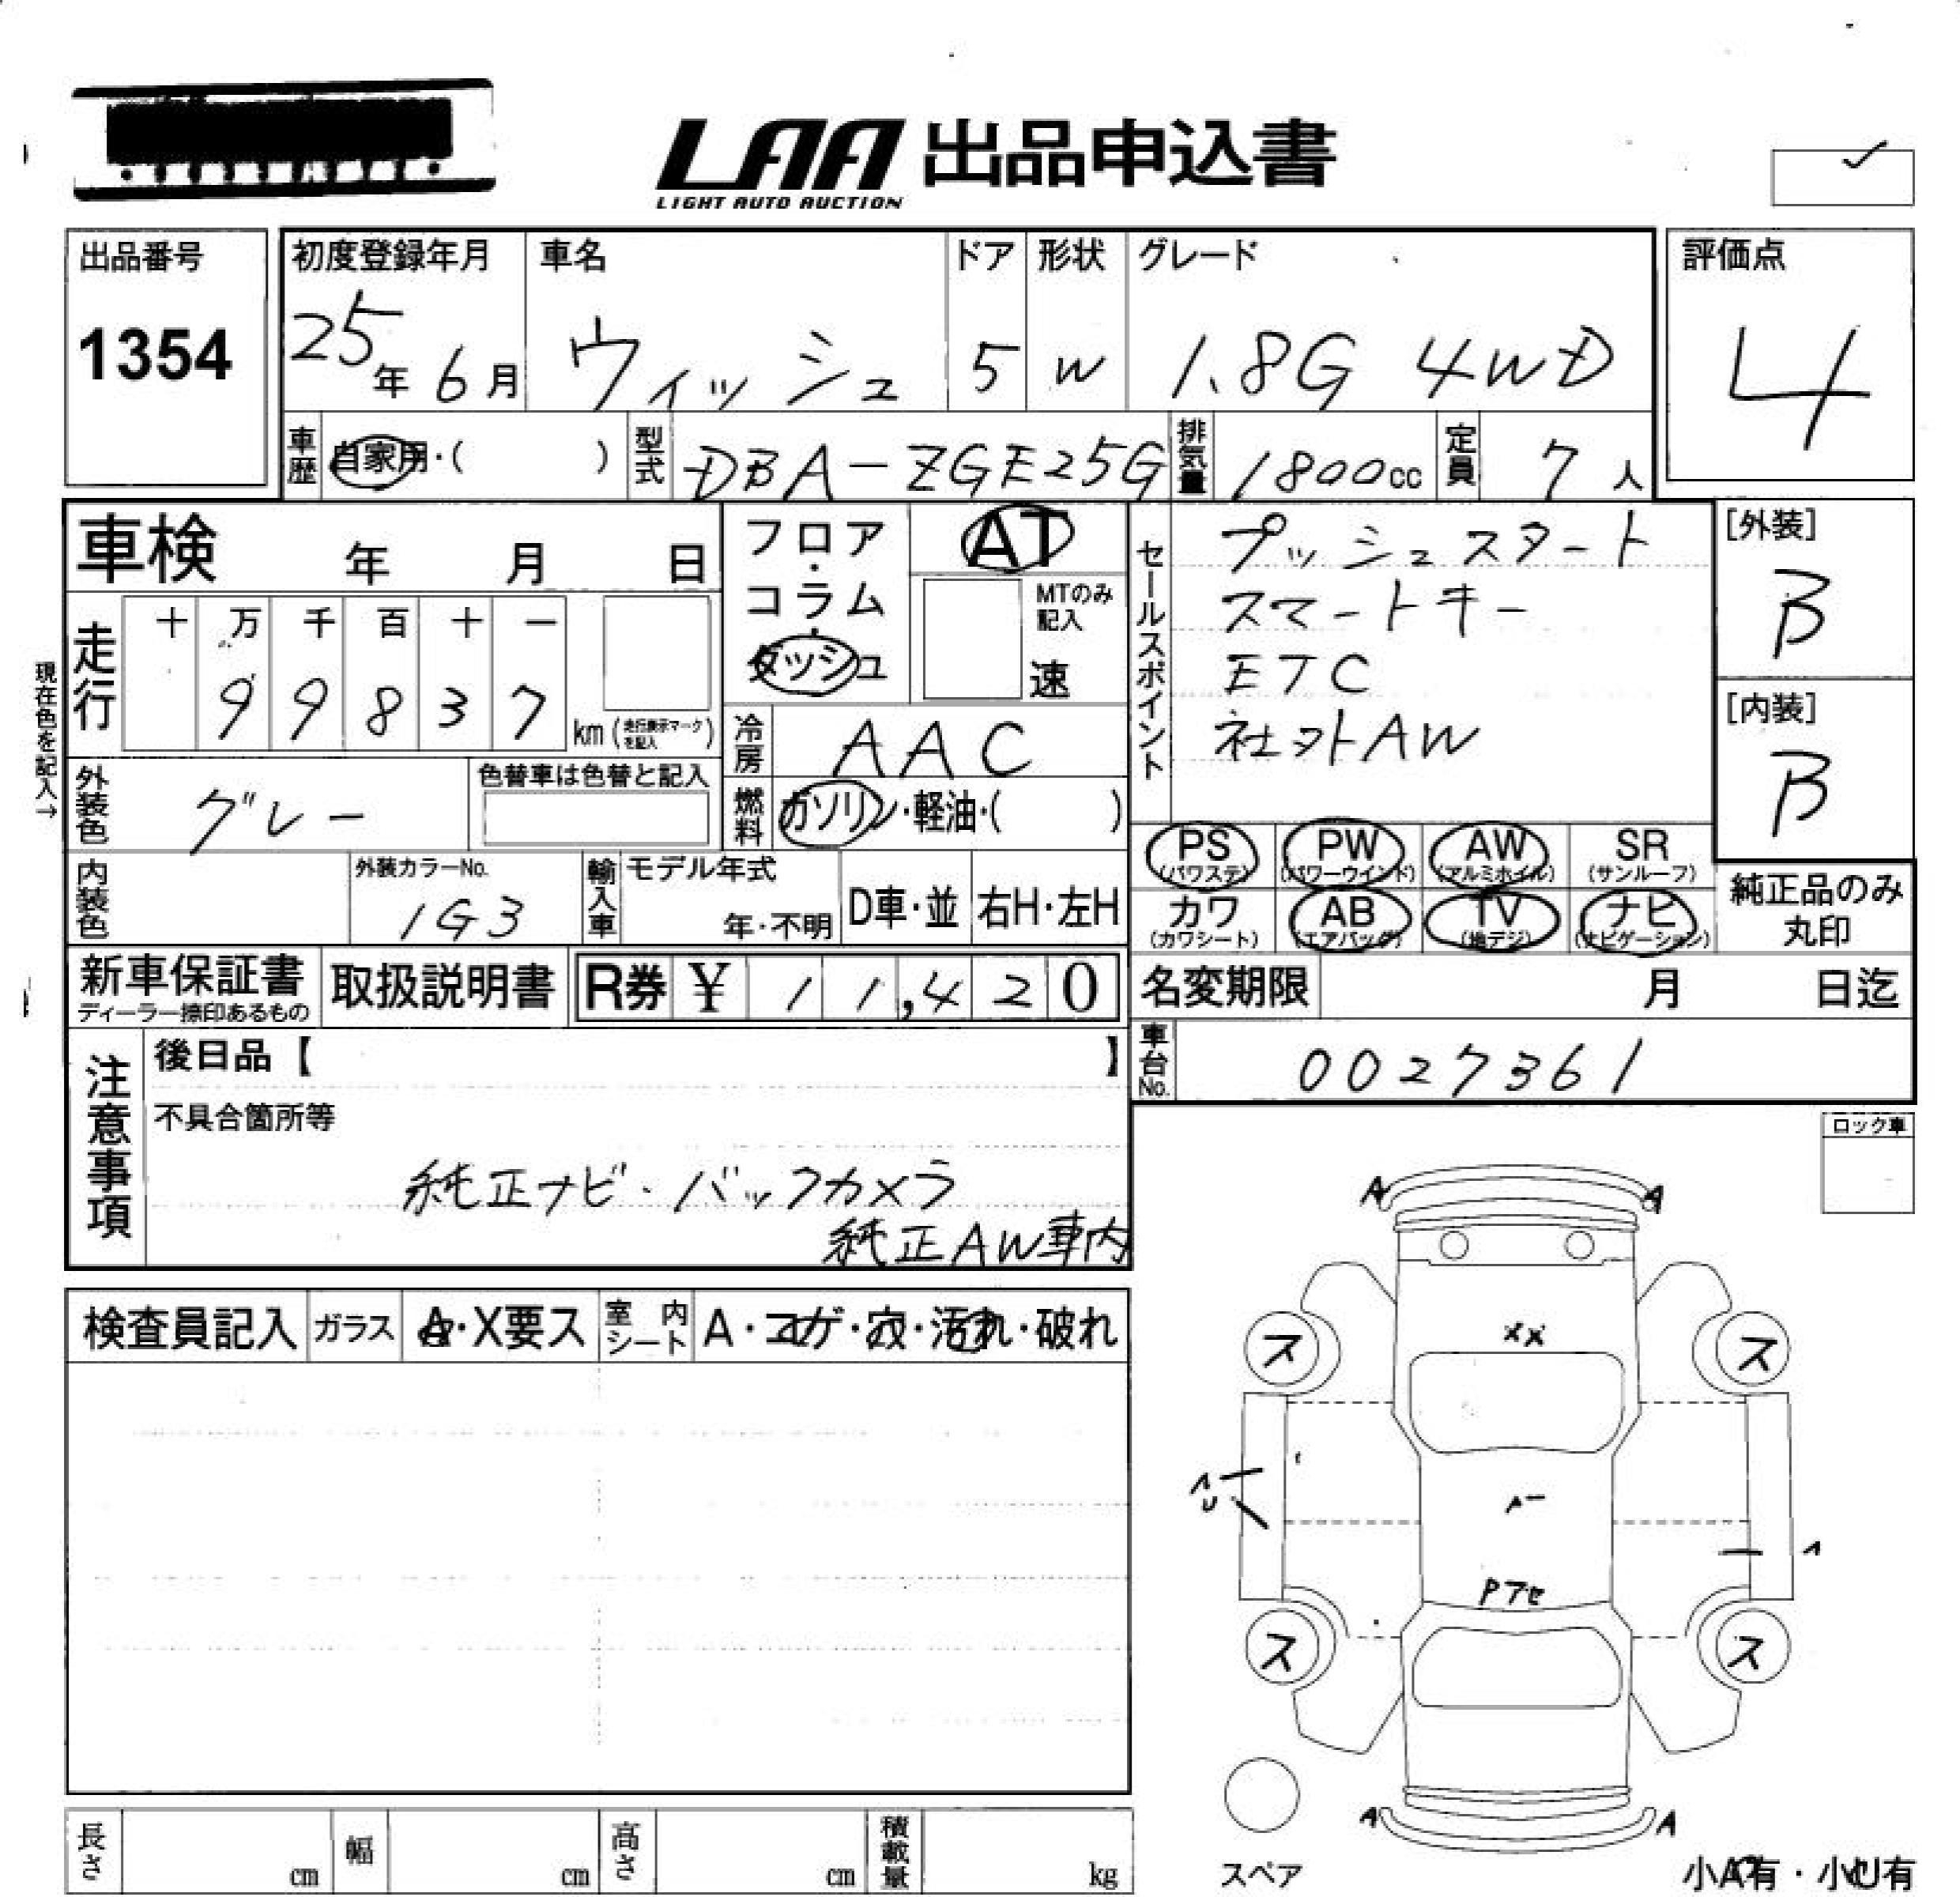 LAA 出品申込書
LIGHT AUTO AUCTION
出品番号
1354
初度登録年月
25年 6月
車名
ウィッシュ
ドア
5
形状
W
グレード
1.8G 4WD
評価点
4
車歴
自家用・( )
型式
DBA-ZGE25G
排気量
1800cc
定員
7人
車検 年 月 日
フロア・コラム・ダッシュ
AT
MTのみ記入
速
セールスポイント
プッシュスタート
スマートキー
ETC
社外AW
[外装]
B
[内装]
B
現在色を記入→
走行
十 万 千 百 十 一
9 9 8 3 7
km (走行表示マークを記入)
冷房
AAC
外装色
グレー
色替車は色替と記入
燃料
ガソリン・軽油・( )
PS (パワステ)
PW (パワーウインド)
AW (アルミホイル)
SR (サンルーフ)
カワ (カワシート)
AB (エアバッグ)
TV (地デジ)
ナビ (ナビゲーション)
純正品のみ丸印
内装色
外装カラーNo.
1G3
輸入車
モデル年式
年・不明
D車・並
右H・左H
新車保証書
ディーラー捺印あるもの
取扱説明書
R券 ¥ 11,420
名変期限 月 日迄
車台No.
0027361
注意事項
後日品【 】
不具合箇所等
純正ナビ・バックカメラ
純正AW車内
ロック車
検査員記入
ガラス
A・X要ス
室内シート
A・コゲ・穴・汚れ・破れ
A A
XX
ス ス
Pアセ
ス ス
A A
スペア
小A有・小U有
長さ cm
幅 cm
高さ cm
積載量 kg